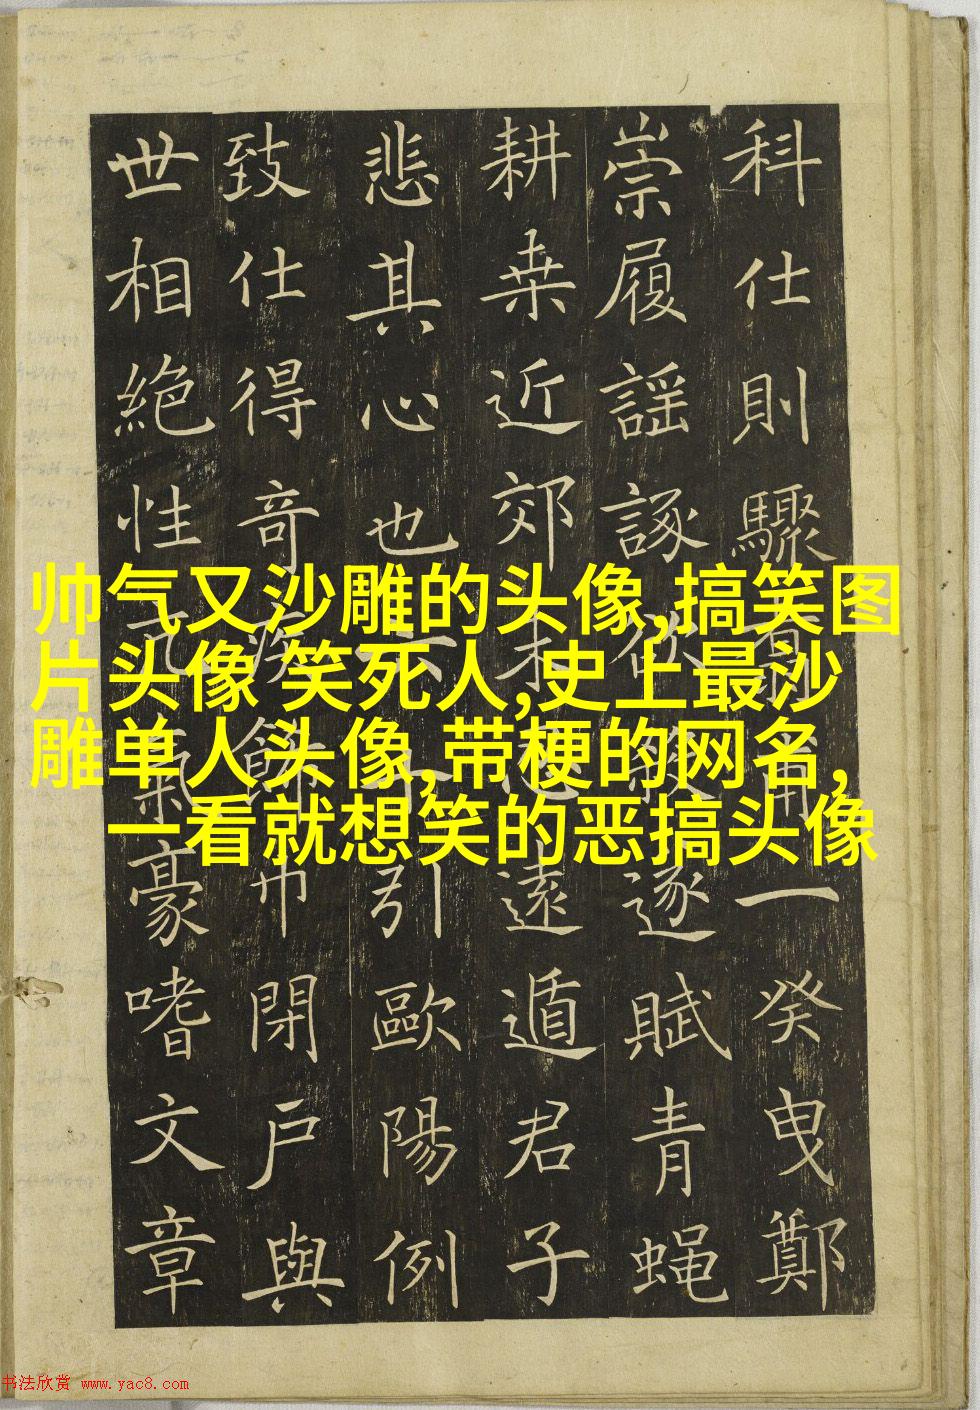 科仕則驟一癸曳鄭
崇履謡諑逐賦青蝿
耕桒近郊遠遁君子
悲其心也引歐陽例
致仕得奇疾巾閉戶與
世相絕性豪嗜文章
帅气又沙雕的头像,搞笑图
片头像 笑死人,史上最沙
雕单人头像,带梗的网名,
一看就想笑的恶搞头像
书法欣赏 www.yac8.com